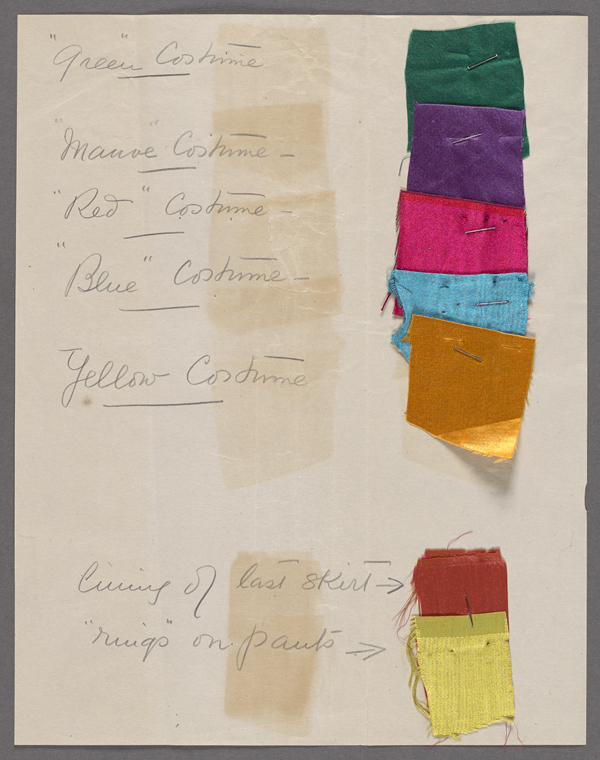 "Green" Costume
"Mauve" Costume –
"Red" Costume –
"Blue" Costume –
Yellow Costume
lining of last skirt →
"rings" on pants →